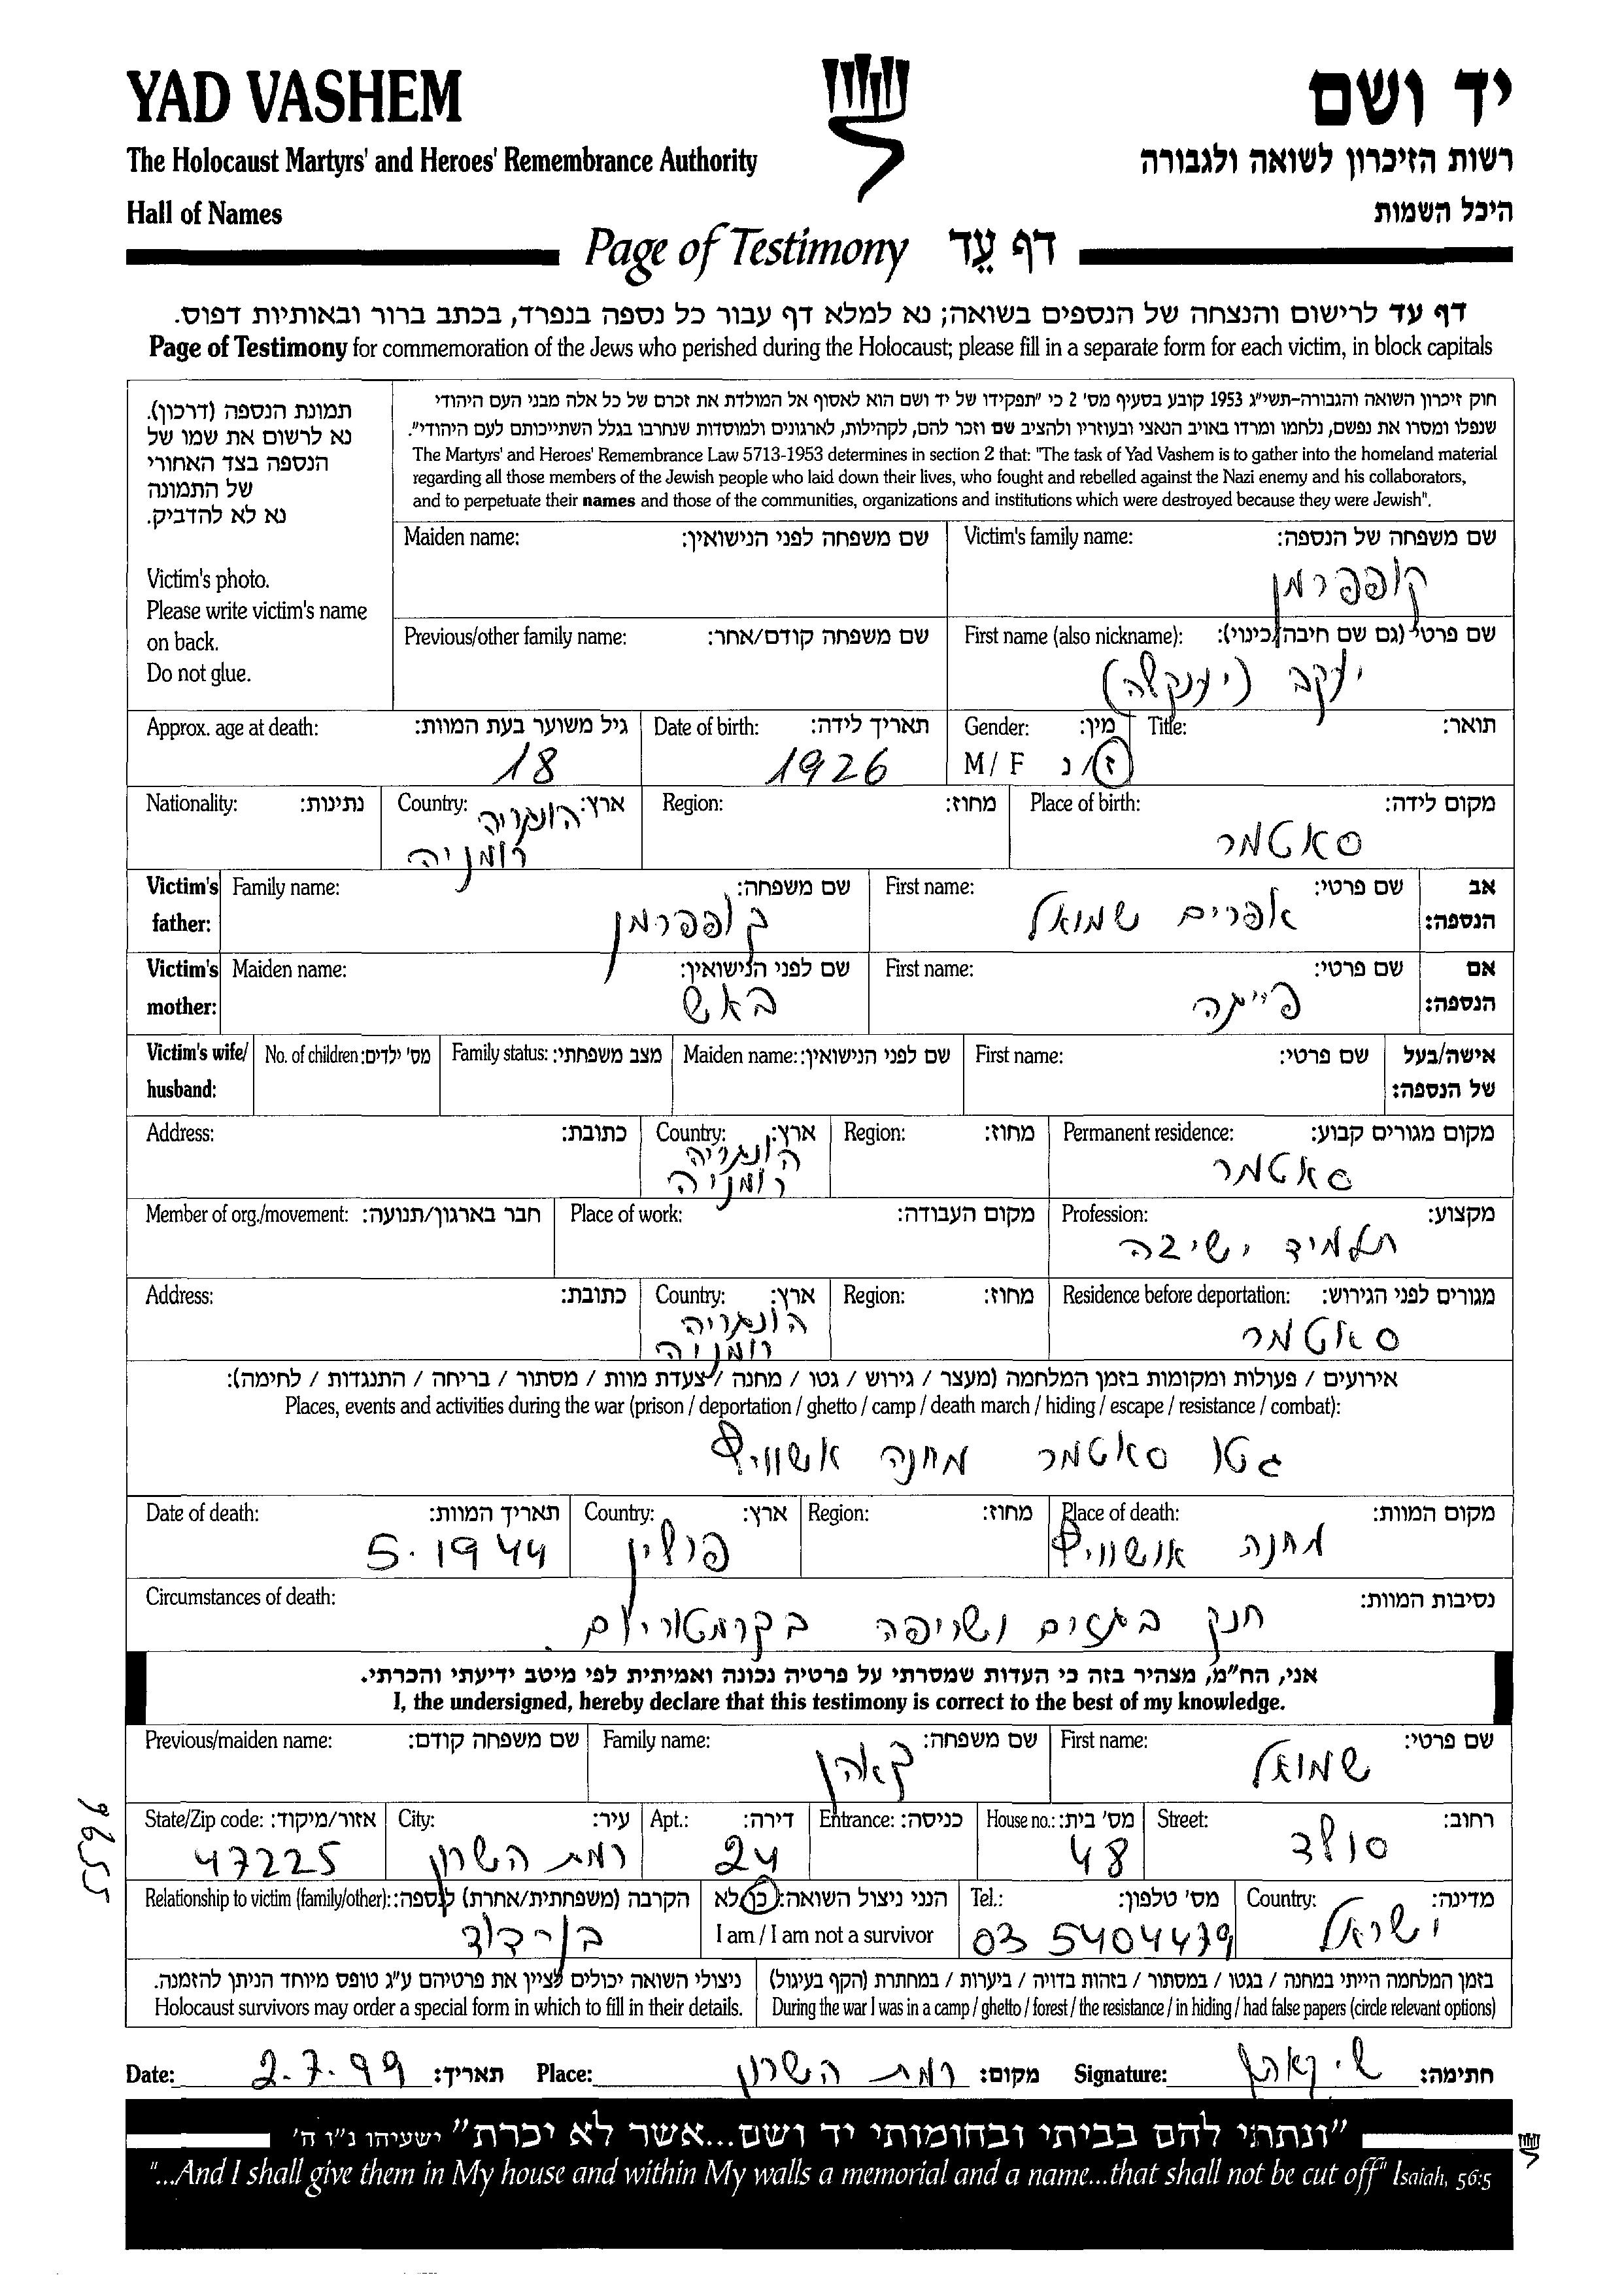 YAD VASHEM
יד ושם
The Holocaust Martyrs' and Heroes' Remembrance Authority
רשות הזיכרון לשואה ולגבורה
Hall of Names
היכל השמות
Page of Testimony דף עֵד
דף עד לרישום והנצחה של הנספים בשואה; נא למלא דף עבור כל נספה בנפרד, בכתב ברור ובאותיות דפוס.
Page of Testimony for commemoration of the Jews who perished during the Holocaust; please fill in a separate form for each victim, in block capitals
תמונת הנספה (דרכון).
נא לרשום את שמו של
הנספה בצד האחורי
של התמונה
נא לא להדביק.
Victim's photo.
Please write victim's name
on back.
Do not glue.
חוק זיכרון השואה והגבורה-תשי"ג 1953 קובע בסעיף מס' 2 כי "תפקידו של יד ושם הוא לאסוף אל המולדת את זכרם של כל אלה מבני העם היהודי
שנפלו ומסרו את נפשם, נלחמו ומרדו באויב הנאצי ובעוזריו ולהציב שם וזכר להם, לקהילות, לארגונים ולמוסדות שנחרבו בגלל השתייכותם לעם היהודי".
The Martyrs' and Heroes' Remembrance Law 5713-1953 determines in section 2 that: "The task of Yad Vashem is to gather into the homeland material
regarding all those members of the Jewish people who laid down their lives, who fought and rebelled against the Nazi enemy and his collaborators,
and to perpetuate their names and those of the communities, organizations and institutions which were destroyed because they were Jewish".
Maiden name: שם משפחה לפני הנישואין:
Victim's family name: שם משפחה של הנספה:
קופפרמן
Previous/other family name: שם משפחה קודם/אחר:
First name (also nickname): שם פרטי (גם שם חיבה/כינוי):
יעקב (יענקלה)
Approx. age at death: גיל משוער בעת המוות:
18
Date of birth: תאריך לידה:
1926
Gender: מין:
M / F ז/נ
Title: תואר:
Nationality: נתינות:
Country: ארץ:
הונגריה
רומניה
Region: מחוז:
Place of birth: מקום לידה:
סאטמר
Victim's father:
Family name: שם משפחה:
קופפרמן
First name: שם פרטי:
אפרים שמואל
אב הנספה:
Victim's mother:
Maiden name: שם לפני הנישואין:
באש
First name: שם פרטי:
פייגה
אם הנספה:
Victim's wife/ husband:
No. of children: מס' ילדים:
Family status: מצב משפחתי:
Maiden name: שם לפני הנישואין:
First name: שם פרטי:
אישה/בעל של הנספה:
Address: כתובת:
Country: ארץ:
הונגריה
רומניה
Region: מחוז:
Permanent residence: מקום מגורים קבוע:
סאטמר
Member of org./movement: חבר בארגון/תנועה:
Place of work: מקום העבודה:
Profession: מקצוע:
תלמיד ישיבה
Address: כתובת:
Country: ארץ:
הונגריה
רומניה
Region: מחוז:
Residence before deportation: מגורים לפני הגירוש:
סאטמר
אירועים / פעולות ומקומות בזמן המלחמה (מעצר / גירוש / גטו / מחנה / צעדת מוות / מסתור / בריחה / התנגדות / לחימה):
Places, events and activities during the war (prison / deportation / ghetto / camp / death march / hiding / escape / resistance / combat):
גטו סאטמר מחנה אשוויץ
Date of death: תאריך המוות:
5.1944
Country: ארץ:
פולין
Region: מחוז:
Place of death: מקום המוות:
מחנה אושוויץ
Circumstances of death: נסיבות המוות:
חנק בגזים ושריפה בקרמטוריום.
אני, הח"מ, מצהיר בזה כי העדות שמסרתי על פרטיה נכונה ואמיתית לפי מיטב ידיעתי והכרתי.
I, the undersigned, hereby declare that this testimony is correct to the best of my knowledge.
Previous/maiden name: שם משפחה קודם:
Family name: שם משפחה:
קאהן
First name: שם פרטי:
שמואל
State/Zip code: אזור/מיקוד:
47225
City: עיר:
רמת השרון
Apt.: דירה:
24
Entrance: כניסה:
House no.: מס' בית:
48
Street: רחוב:
סולד
9655
Relationship to victim (family/other): הקרבה (משפחתית/אחרת) לנספה:
בן דוד
הנני ניצול השואה: כן/לא
I am / I am not a survivor
Tel.: מס' טלפון:
03 5404479
Country: מדינה:
ישראל
ניצולי השואה יכולים לציין את פרטיהם ע"ג טופס מיוחד הניתן להזמנה.
Holocaust survivors may order a special form in which to fill in their details.
בזמן המלחמה הייתי במחנה / בגטו / במסתור / בזהות בדויה / ביערות / במחתרת (הקף בעיגול)
During the war I was in a camp / ghetto / forest / the resistance / in hiding / had false papers (circle relevant options)
Date: 2.7.99 תאריך: Place: רמת השרון מקום: Signature: ש. קאהן חתימה:
"ונתתי להם בביתי ובחומותי יד ושם...אשר לא יכרת" ישעיהו נ"ו ה'
"...And I shall give them in My house and within My walls a memorial and a name...that shall not be cut off" Isaiah, 56:5